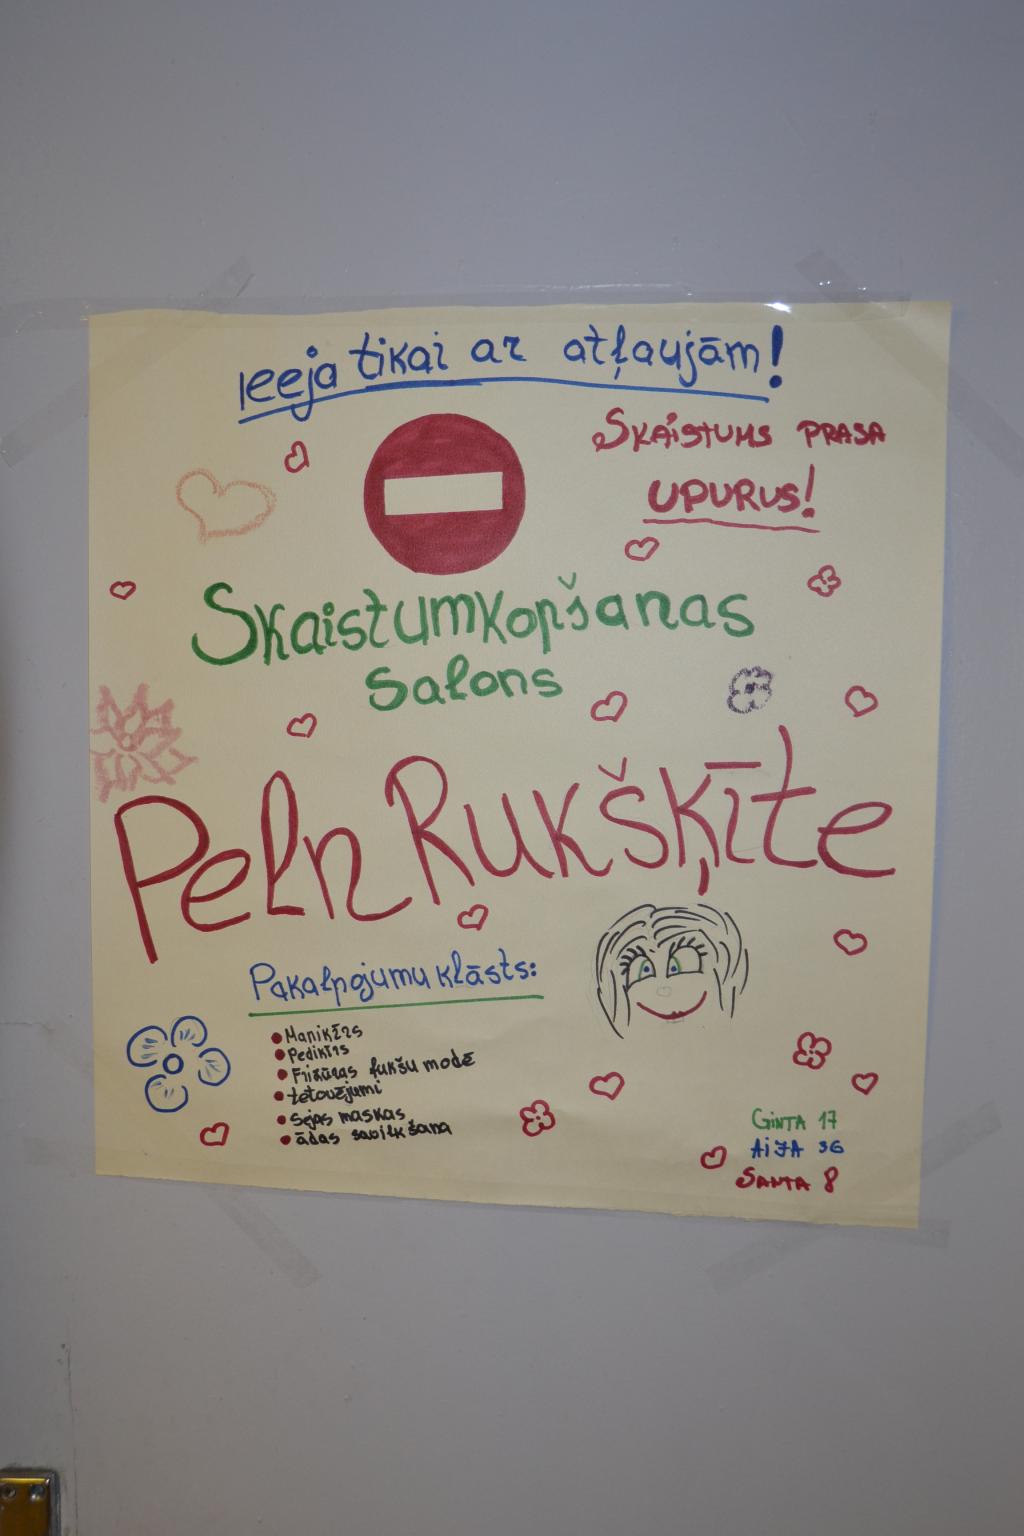 Ieeja tikai ar atļaujām!
Skaistums prasa
upurus!
Skaistumkopšanas
salons
PelnRukšķīte
Pakalpojumu klāsts:
Manikīrs
Pedikīrs
Frizūras ļukšu modē
tetovējumi
sejas maskas
ādas savilkšana
Ginta 17
Aija 36
Santa 8